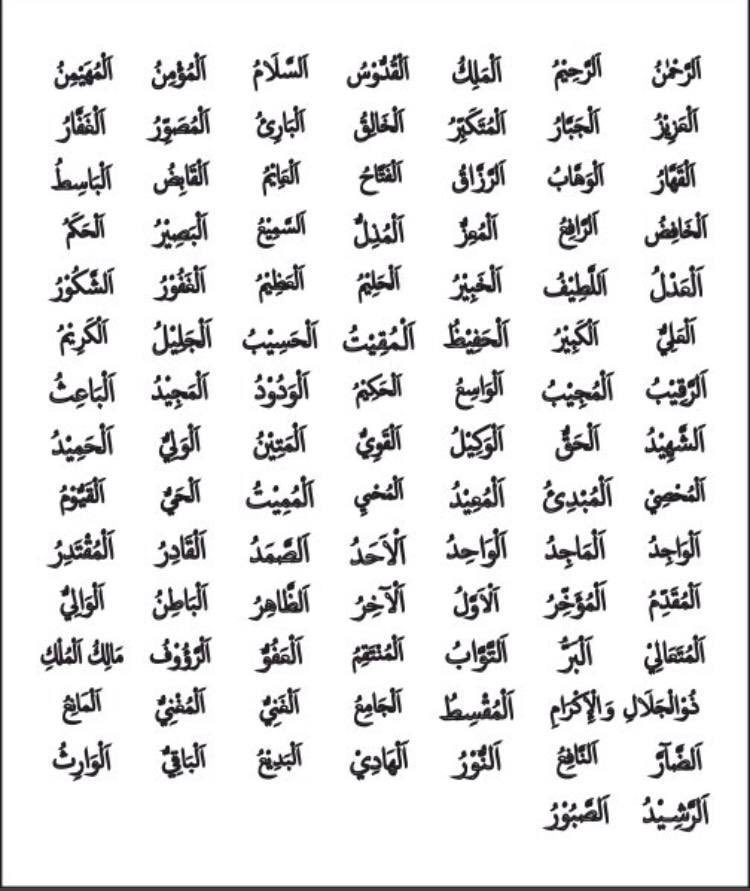 اَلرَّحْمٰنُ اَلرَّحِيْمُ اَلْمَلِكُ اَلْقُدُّوْسُ اَلسَّلَامُ اَلْمُؤْمِنُ اَلْمُهَيْمِنُ
اَلْعَزِيْزُ اَلْجَبَّارُ اَلْمُتَكَبِّرُ اَلْخَالِقُ اَلْبَارِئُ اَلْمُصَوِّرُ اَلْغَفَّارُ
اَلْقَهَّارُ اَلْوَهَّابُ اَلرَّزَّاقُ اَلْفَتَّاحُ اَلْعَلِيْمُ اَلْقَابِضُ اَلْبَاسِطُ
اَلْخَافِضُ اَلرَّافِعُ اَلْمُعِزُّ اَلْمُذِلُّ اَلسَّمِيْعُ اَلْبَصِيْرُ اَلْحَكَمُ
اَلْعَدْلُ اَللَّطِيْفُ اَلْخَبِيْرُ اَلْحَلِيْمُ اَلْعَظِيْمُ اَلْغَفُوْرُ اَلشَّكُوْرُ
اَلْعَلِيُّ اَلْكَبِيْرُ اَلْحَفِيْظُ اَلْمُقِيْتُ اَلْحَسِيْبُ اَلْجَلِيْلُ اَلْكَرِيْمُ
اَلرَّقِيْبُ اَلْمُجِيْبُ اَلْوَاسِعُ اَلْحَكِيْمُ اَلْوَدُوْدُ اَلْمَجِيْدُ اَلْبَاعِثُ
اَلشَّهِيْدُ اَلْحَقُّ اَلْوَكِيْلُ اَلْقَوِيُّ اَلْمَتِيْنُ اَلْوَلِيُّ اَلْحَمِيْدُ
اَلْمُحْصِيْ اَلْمُبْدِئُ اَلْمُعِيْدُ اَلْمُحْيِ اَلْمُمِيْتُ اَلْحَيُّ اَلْقَيُّوْمُ
اَلْوَاجِدُ اَلْمَاجِدُ اَلْوَاحِدُ اَلْاَحَدُ اَلصَّمَدُ اَلْقَادِرُ اَلْمُقْتَدِرُ
اَلْمُقَدِّمُ اَلْمُؤَخِّرُ اَلْاَوَّلُ اَلْآخِرُ اَلظَّاهِرُ اَلْبَاطِنُ اَلْوَالِيُّ
اَلْمُتَعَالِيْ اَلْبَرُّ اَلتَّوَّابُ اَلْمُنْتَقِمُ اَلْعَفُوُّ اَلرَّؤُوْفُ مَالِكُ الْمُلْكِ
ذُوْالْجَلَالِ وَالْاِكْرَامِ اَلْمُقْسِطُ اَلْجَامِعُ اَلْغَنِيُّ اَلْمُغْنِيُّ اَلْمَانِعُ
اَلضَّآرُّ اَلنَّافِعُ اَلنُّوْرُ اَلْهَادِيْ اَلْبَدِيْعُ اَلْبَاقِيُّ اَلْوَارِثُ
اَلرَّشِيْدُ اَلصَّبُوْرُ